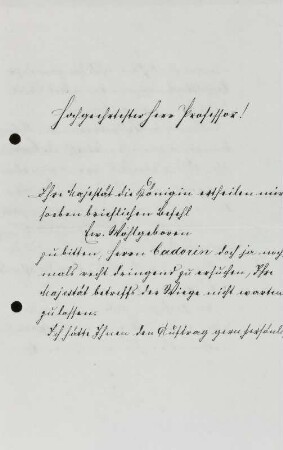 Hochgeehrtester Herr Professor!
Ihre Majestät die Königin ertheilen mir
soeben brieflichen Befehl
Ew. Wohlgeboren
zu bitten, Herrn Cadorin doch ja noch
mals recht dringend zu ersuchen, Ihre
Majestät betreffs der Wiege nicht warten
zu lassen.
Ich hätte Ihnen den Auftrag gern persönl.